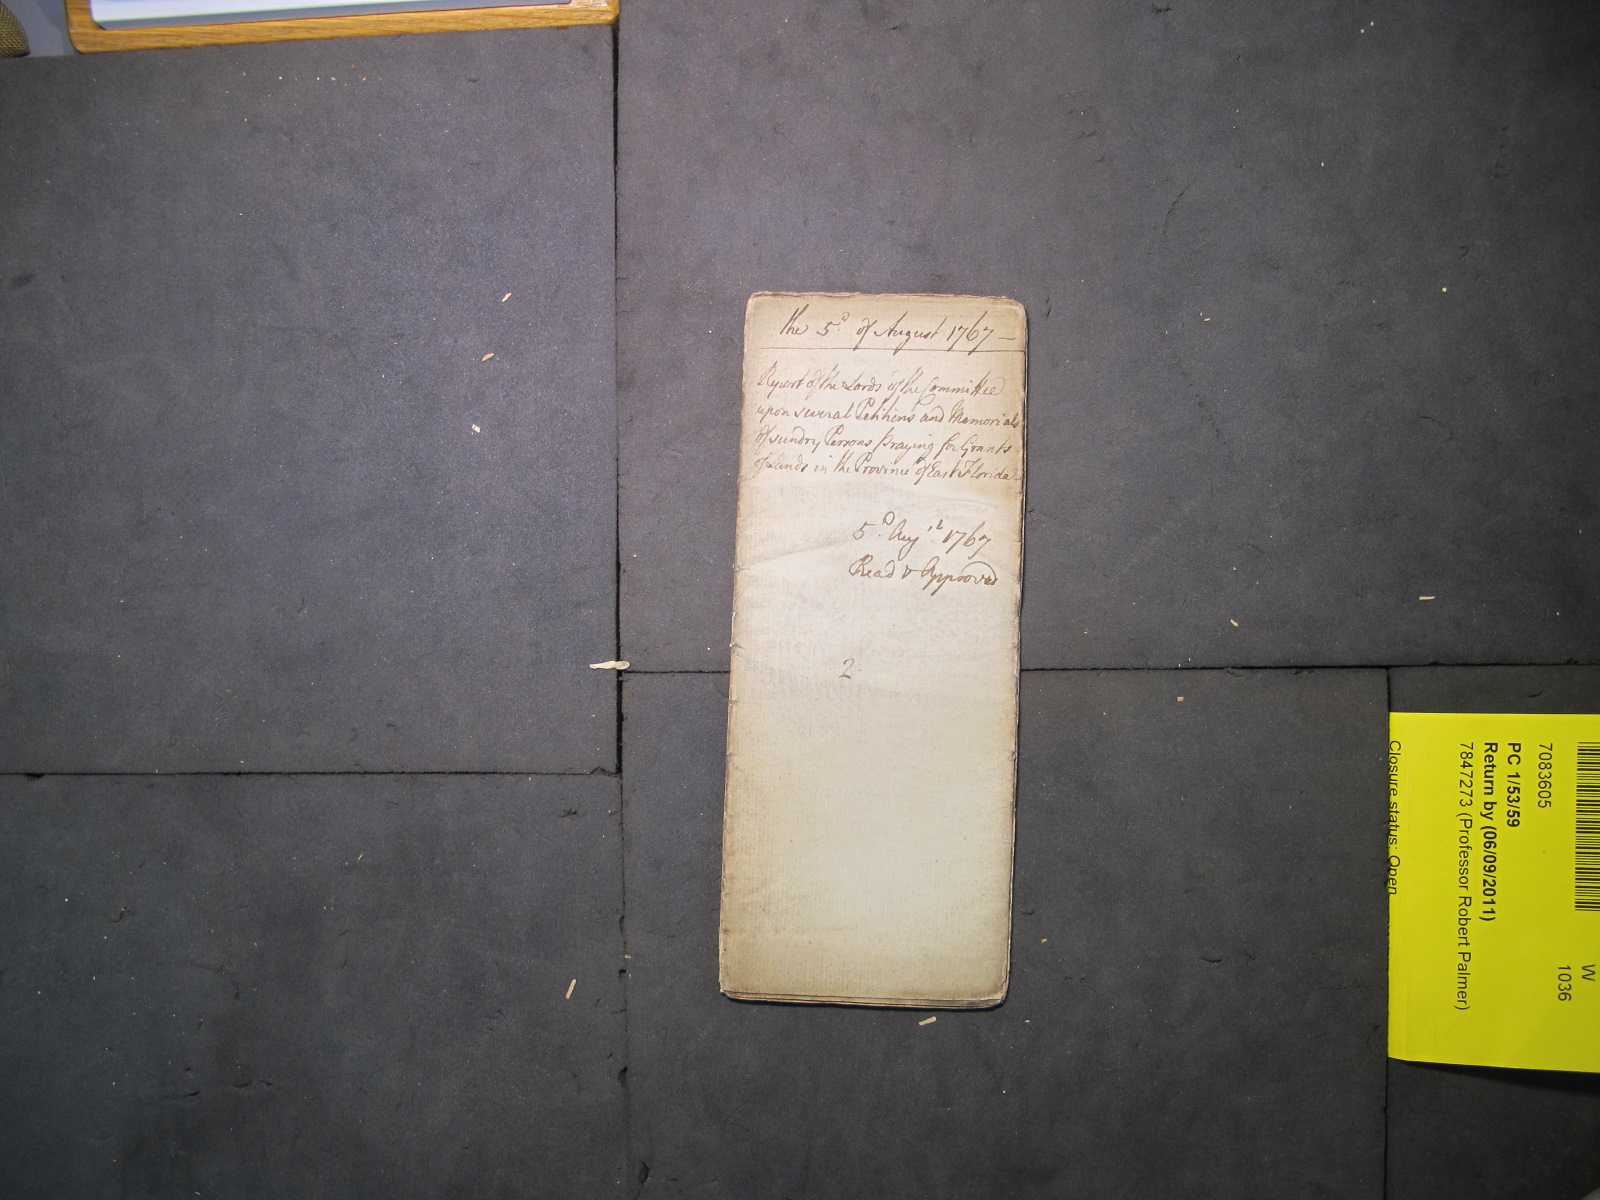 the 5.th of August 1767 —
Report of the Lords of the Committee
upon several Petitions and Memorials
of sundry Persons praying for Grants
of Lands in the Province of East Florida
5.th Aug.st 1767
Read & Approved
2
W
1036
7083605
PC 1/53/59
Return by (06/09/2011)
7847273 (Professor Robert Palmer)
Closure status: Open